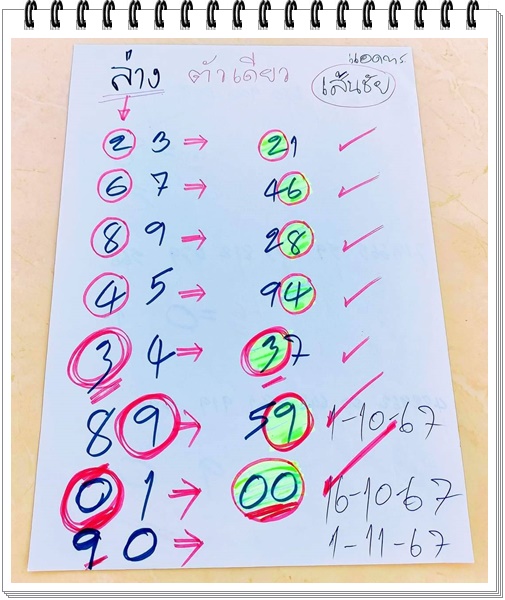 แอดการ
ล่าง ตัวเดียว เส้นชัย
2 3 ⇒ 21 ✓
6 7 ⇒ 46 ✓
8 9 ⇒ 28 ✓
4 5 ⇒ 94 ✓
3 4 ⇒ 37 ✓
8 9 ⇒ 59 ✓ 1-10-67
0 1 → 00 ✓ 16-10-67
9 0 ⇒ 1-11-67